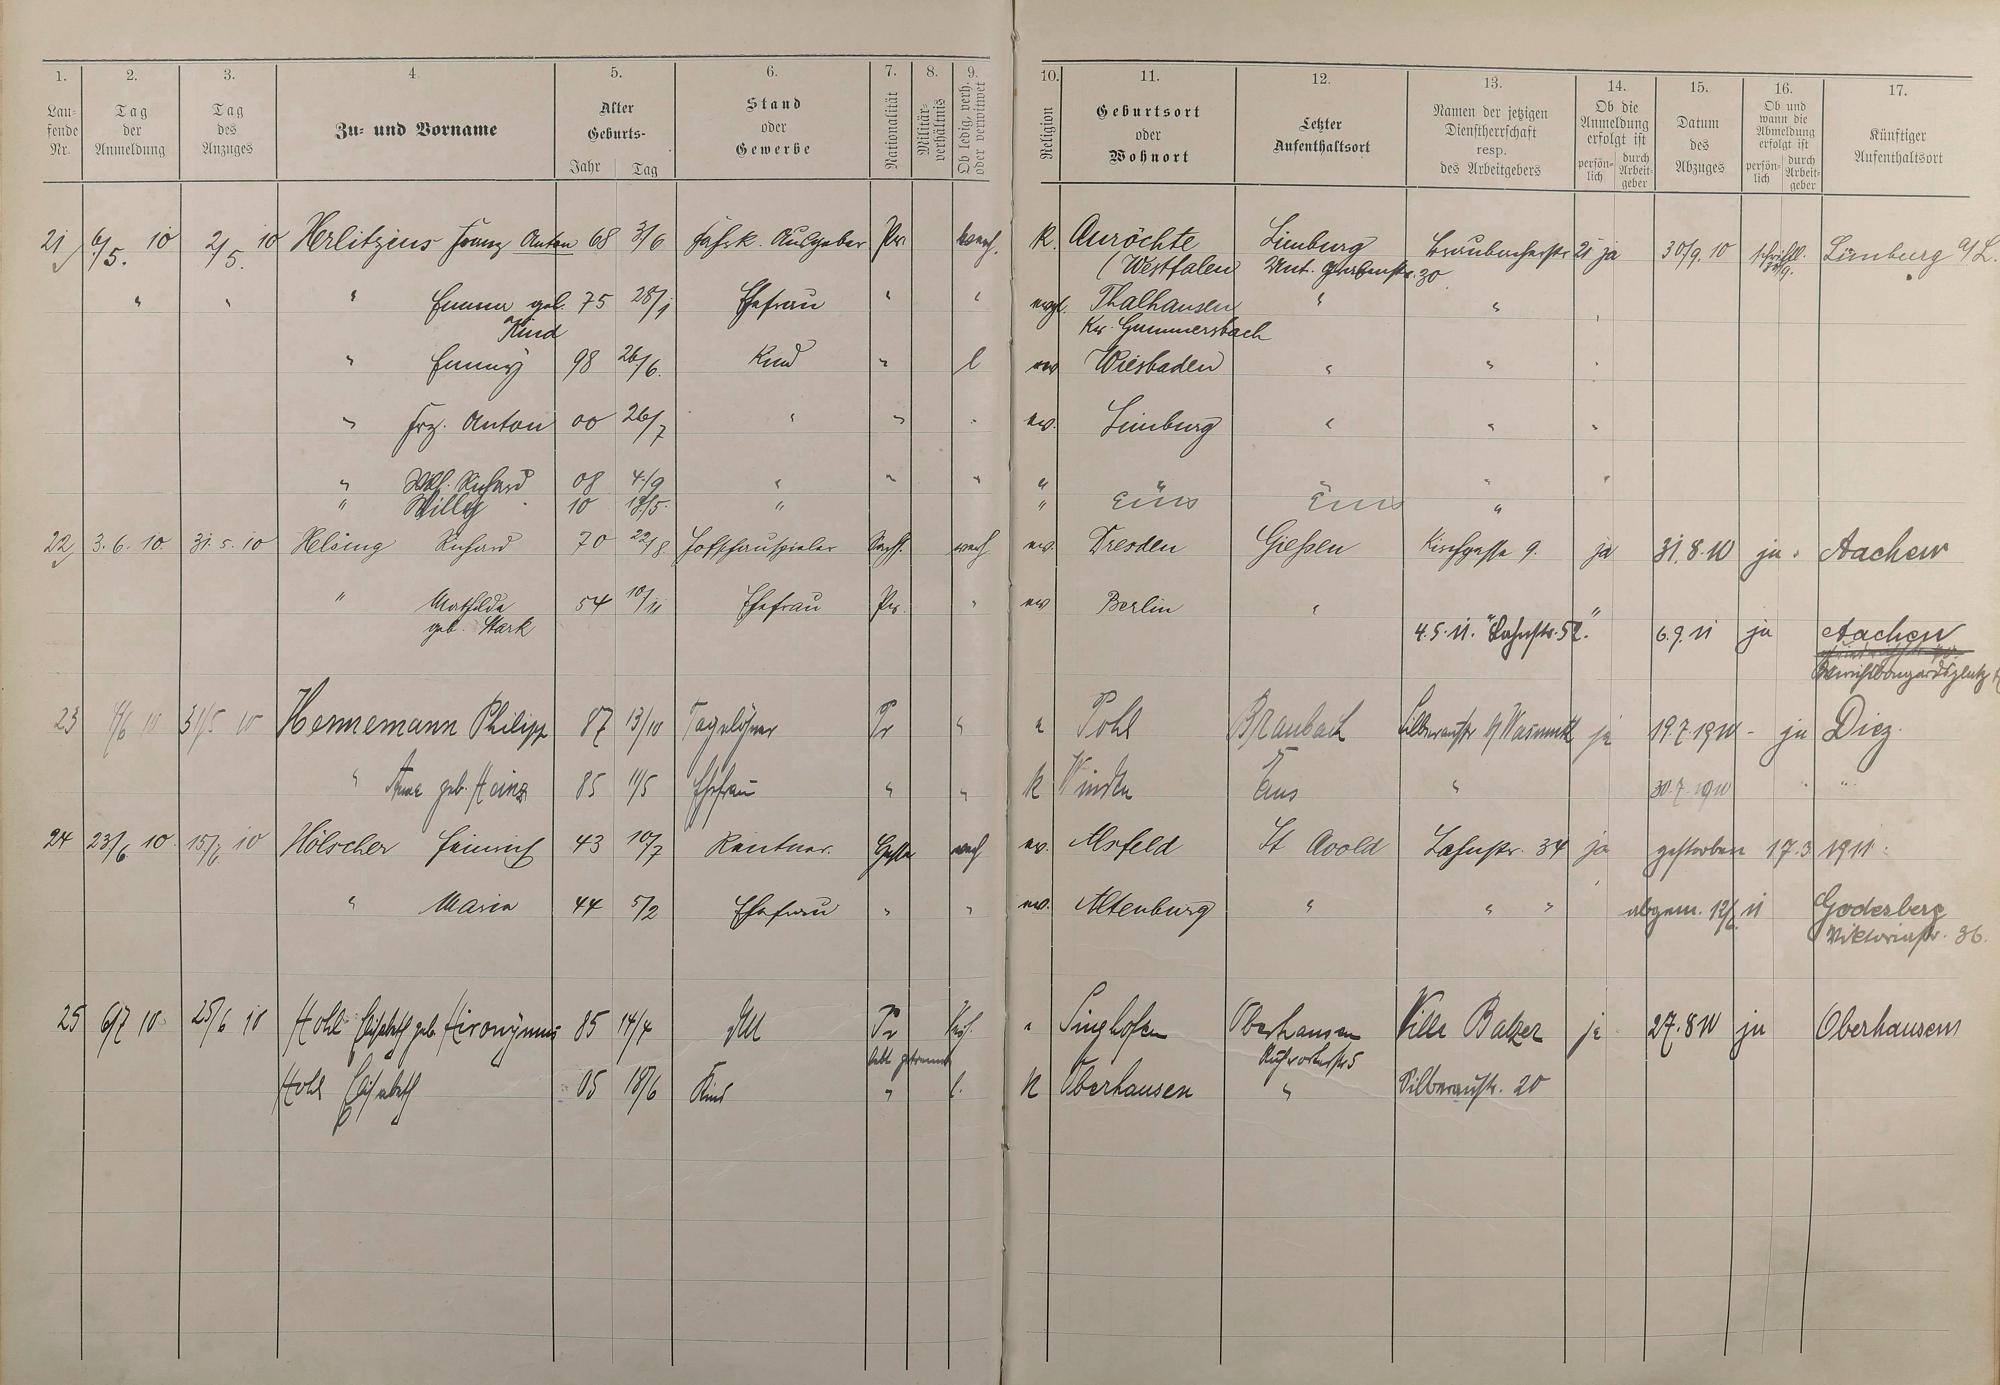 1. 2. 3. 4. 5. 6. 7. 8. 9. 10. 11. 12. 13. 14. 15. 16. 17.
Lau-
fende
Nr.
Tag
der
Anmeldung
Tag
des
Anzuges
Zu- und Vorname
Alter
Geburts-
Jahr Tag
Stand
oder
Gewerbe
Nationalität
Militär-
verhältnis
Ob ledig, verh.
oder verwitwet
Religion
Geburtsort
oder
Wohnort
Letzter
Aufenthaltsort
Namen der jetzigen
Dienstherrschaft
resp.
des Arbeitgebers
Ob die
Anmeldung
erfolgt ist
persön-
lich
durch
Arbeit-
geber
Datum
des
Abzuges
Ob und
wann die
Abmeldung
erfolgt ist
persön-
lich
durch
Arbeit-
geber
Künftiger
Aufenthaltsort
21 6/5. 10 2/5. 10 Herlitzius Franz Anton 68 3/6 Fahrk. Ausgeber Pr. verh. k. Anröchte Limburg Braubacherstr 21 ja 30/9. 10 schriftl. Limburg a/L.
(Westfalen 30
" " " Emma geb. 75 28/1 Ehefrau " " evgl. Thalhausen " "
Kind Kr. Gummersbach
" Emmy 98 26/6. Kind " l ev Wiesbaden " "
" Frz. Anton 00 26/7 " " " ev. Limburg " " "
" Richard 08 4/9 " " " " " " " "
" Willy 10 " " Ems Ems "
22 3. 6. 10. 31. 5. 10 Helsing Richard 70 22/8 Hofschauspieler Sachs. verh ev. Dresden Gießen Kirchgasse 9. ja 31. 8. 10 ja. Aachen
" Mathilde 54 10/11 Ehefrau Pr. " ev Berlin "
geb. Stark 4. 5. 11. "Lahnstr. 52." 6. 9. 11 ja Aachen
23 4/6 10 31/5 10 Hennemann Philipp 87 13/10 Tagelöhner Pr " " Pohl Braubach Silberaustr ja 19. 7. 1910 - ja Diez.
" Anna geb. Heinz 85 11/5 Ehefrau " " k Winden Ems " 30. 7. 1910 " "
24 23/6 10. 15/6 10 Hölscher Heinrich 43 10/7 Rentner. verh ev. Alsfeld St Avold Lahnstr. 34 ja gestorben 17. 3 1911.
" Maria 44 5/2 Ehefrau " " ev. Altenburg " " " abgem. 12/6. 11 Godesberg
Viktoriastr. 36.
25 6/7 10 25/6 10 Hohl Elisabeth geb. Hieronymus 85 14/4 Pr " Singhofen Oberhausen Villa Balzer ja 27. 8 10 ja Oberhausen
getrennt
Hohl Elisabeth 05 18/6 Kind " l. k Oberhausen " Silberaustr. 20